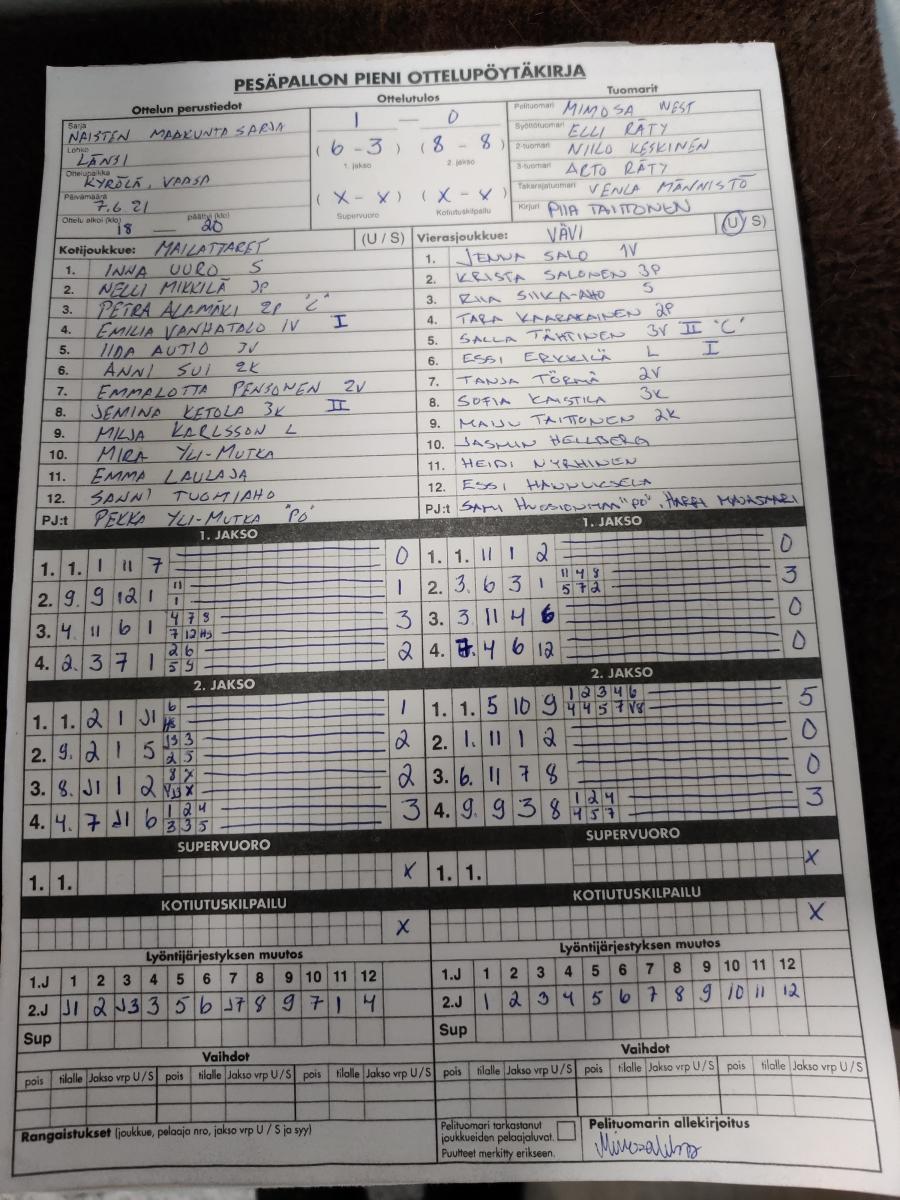 PESÄPALLON PIENI OTTELUPÖYTÄKIRJA
Ottelun perustiedot
Sarja
NAISTEN MAAKUNTASARJA
Lohko
LÄNSI
Ottelupaikka
KYRÖLÄ, VAASA
Päivämäärä
7.6 21
Ottelu alkoi (klo) päättyi (klo)
18 — 20
Ottelutulos
1 — 0
( 6 - 3 ) ( 8 - 8 )
1. jakso 2. jakso
( X - X ) ( X - X )
Supervuoro Kotiutuskilpailu
Tuomarit
Pelituomari MIMOSA WEST
Syöttötuomari ELLI RÄTY
2-tuomari NIILO KESKINEN
3-tuomari ARTO RÄTY
Takarajatuomari VENLA MÄNNISTÖ
Kirjuri PIIA TAITTONEN
Kotijoukkue: MAILATTARET (U / S)
1. INNA UURO S
2. NELLI MIKKILÄ 3P
3. PETRA ALAMÄKI 2P "C"
4. EMILIA VANHATALO 1V I
5. IIDA AUTIO 3V
6. ANNI SUI 2K
7. EMMALOTTA PENSONEN 2V
8. JEMINA KETOLA 3K II
9. MILJA KARLSSON L
10. MIRA YLI-MUTKA
11. EMMA LAULAJA
12. SANNI TUOMIAHO
PJ:t PEKKA YLI-MUTKA "PO"
Vierasjoukkue: VÄVI (U / S)
1. JENNA SALO 1V
2. KRISTA SALONEN 3P
3. RIIA SIIKA-AHO S
4. TARA KAARAKAINEN 2P
5. SALLA TÄHTINEN 3V II "C"
6. ESSI ERKKILÄ L I
7. TANJA TÖRMÄ 2V
8. SOFIA KAISTILA 3K
9. MAIJU TAITTONEN 2K
10. JASMIN HELLBERG
11. HEIDI NYRHINEN
12. ESSI HANNUKSELA
PJ:t SAMI "PO", HARRI
1. JAKSO
1. 1. 1 11 7 0
2. 9. 9 12 1 11 1 1
3. 4. 11 6 1 4 7 8 7 12 H3 3
4. 2. 3 7 1 2 6 5 9 2
1. JAKSO
1. 1. 11 1 2 0
2. 3. 6 3 1 11 4 8 5 7 2 3
3. 3. 11 4 6 0
4. 7. 4 6 12 0
2. JAKSO
1. 1. 2 1 J1 6 1
2. 9. 2 1 5 J3 3 2 5 2
3. 8. J1 1 2 8 X X 2
4. 4. 7 J1 6 1 2 4 3 3 5 3
2. JAKSO
1. 1. 5 10 9 1 2 3 4 6 4 4 5 7 V8 5
2. 1. 11 1 2 0
3. 6. 11 7 8 0
4. 9. 9 3 8 1 2 4 4 5 7 3
SUPERVUORO
1. 1. X
SUPERVUORO
1. 1. X
KOTIUTUSKILPAILU
X
KOTIUTUSKILPAILU
X
Lyöntijärjestyksen muutos
1.J 1 2 3 4 5 6 7 8 9 10 11 12
2.J J1 2 J3 3 5 6 J7 8 9 7 1 4
Sup
Lyöntijärjestyksen muutos
1.J 1 2 3 4 5 6 7 8 9 10 11 12
2.J 1 2 3 4 5 6 7 8 9 10 11 12
Sup
Vaihdot
pois tilalle Jakso vrp U / S pois tilalle Jakso vrp U / S pois tilalle Jakso vrp U / S
Vaihdot
pois tilalle Jakso vrp U / S pois tilalle Jakso vrp U / S pois tilalle Jakso vrp U / S
Rangaistukset (joukkue, pelaaja nro, jakso vrp U / S ja syy)
Pelituomari tarkastanut
joukkueiden pelaajaluvat.
Puutteet merkitty erikseen.
Pelituomarin allekirjoitus